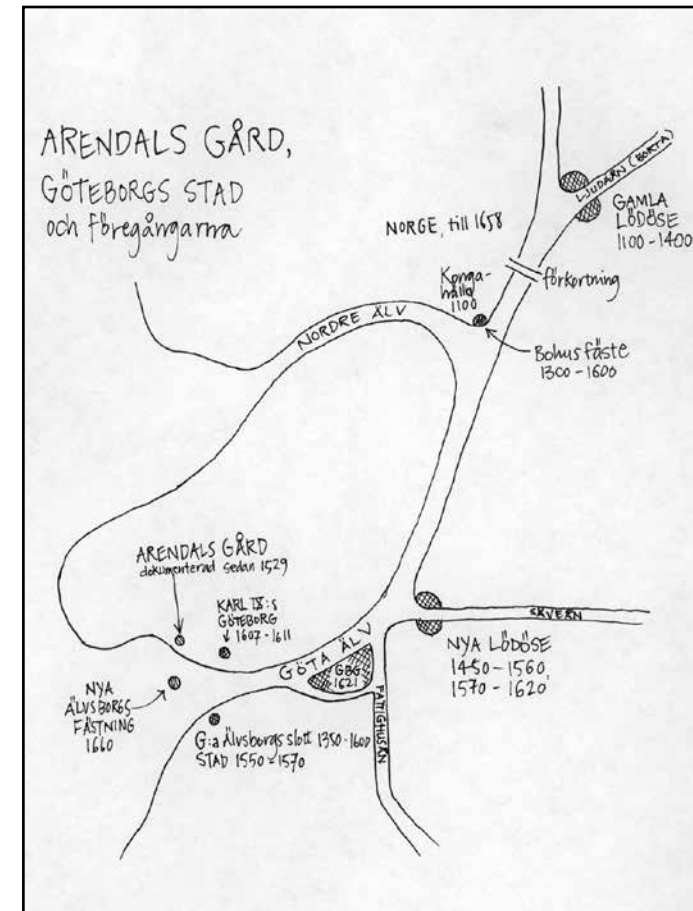 ARENDALS GÅRD,
GÖTEBORGS STAD
och föregångarna
NORGE, till 1658
LJUDAÅRN (BORTA)
GAMLA
LÖDÖSE
1100-1400
förkortning
Konga-
hälla
1100
NORDRE ÄLV
Bohus fäste
1300-1600
ARENDALS GÅRD
dokumenterad sedan 1529
KARL IX:s
GÖTEBORG
1607-1611
GÖTA ÄLV
GBG
1621
SÄVERN
NYA LÖDÖSE
1450-1560,
1570-1620
NYA
ÄLVSBORGS
FÄSTNING
1660
G:a Älvsborgs slott 1350-1600
STAD 1550-1570
FATTIGHUSÅN